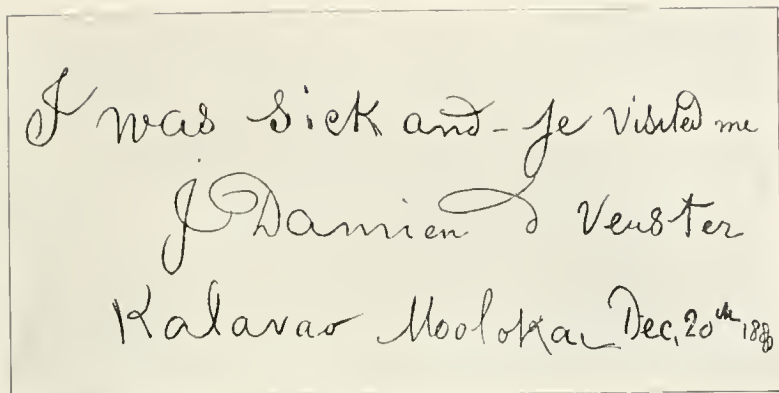 I was sick and - ye visited me
J Damien D Veuster
Kalavao Moolokai Dec, 20th 1888